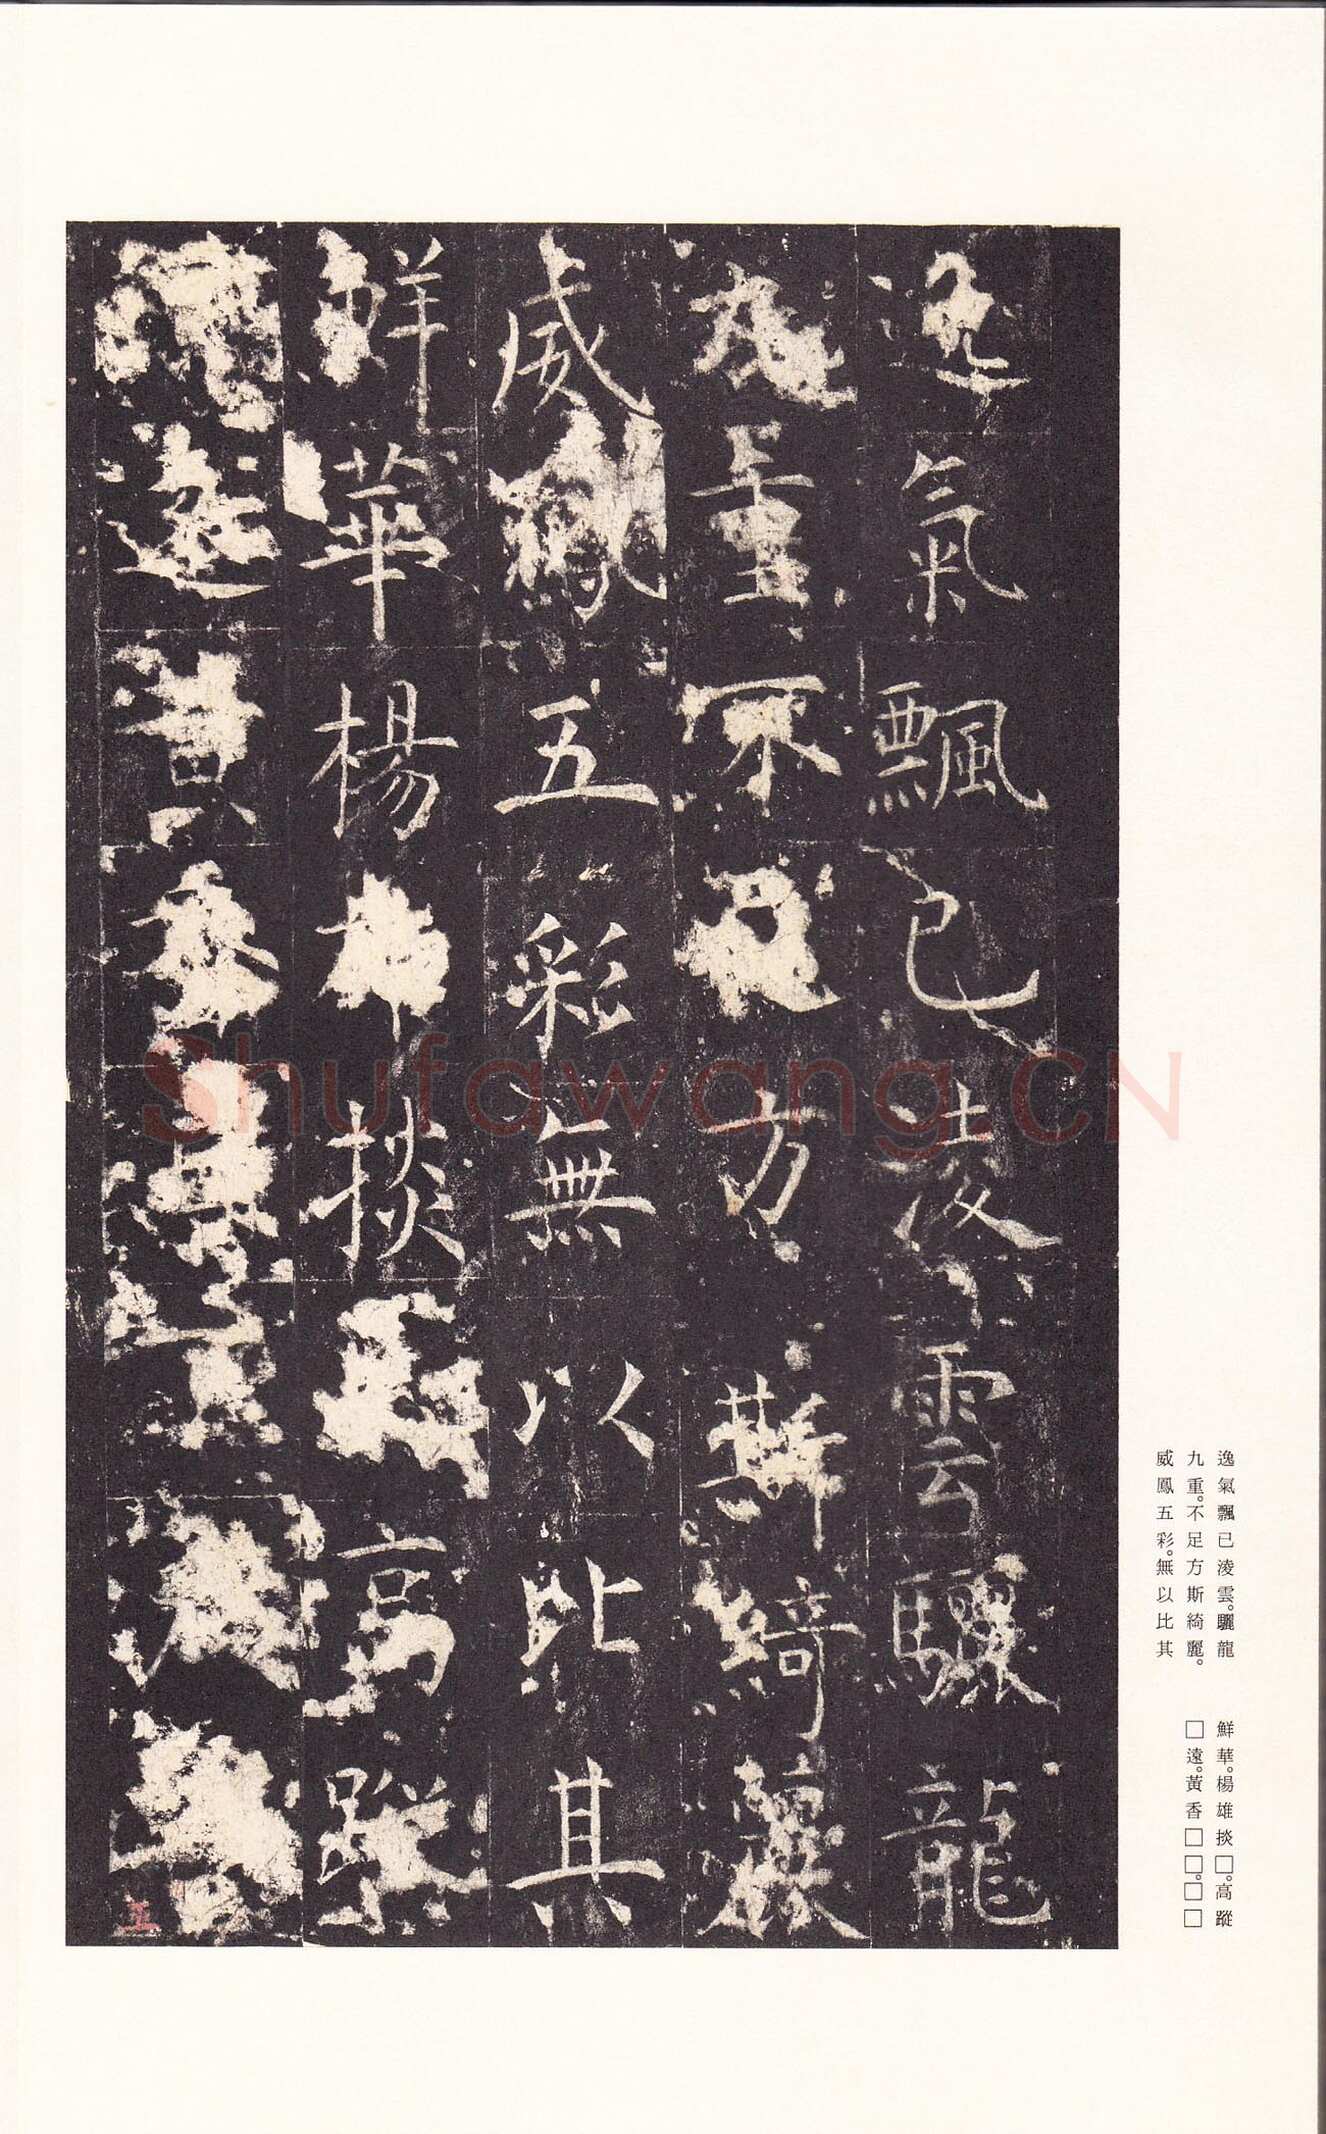 逸氣飄已淩雲驪龍
九重不足方斯綺麗
威鳳五彩無以比其
鮮華楊雄掞高蹤
遠黃香
逸氣飄已淩雲。驪龍
九重。不足方斯綺麗。
威鳳五彩。無以比其
鮮華。楊雄掞□。高蹤
□遠。黃香□□。□□
Shufawang.CN